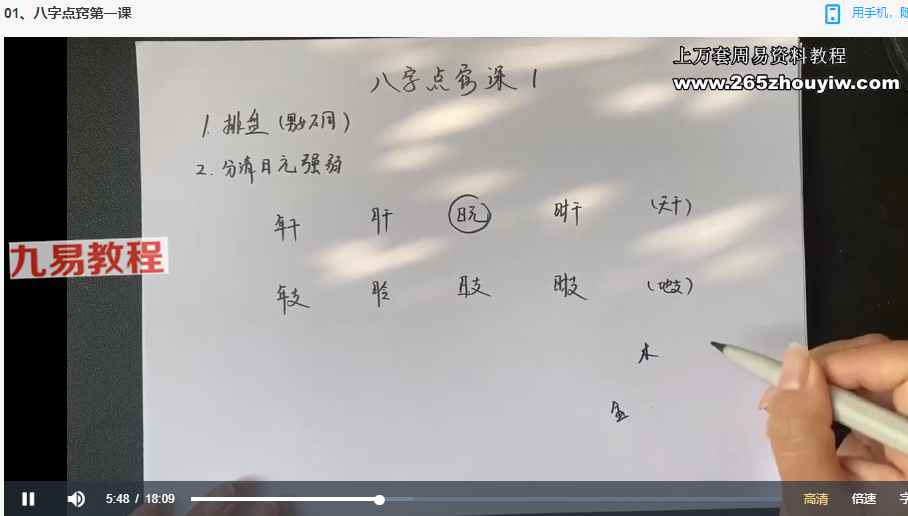 01、八字点窍第一课
用手机，随
上万套周易资料教程
www.265zhouyiw.com
八字点窍课1
1. 排盘（男女不同）
2. 分清日元强弱
年干 月干 日元 时干 （天干）
九易教程
年支 月令 日支 时支 （地支）
木
金
5:48 / 18:09 高清 倍速 字